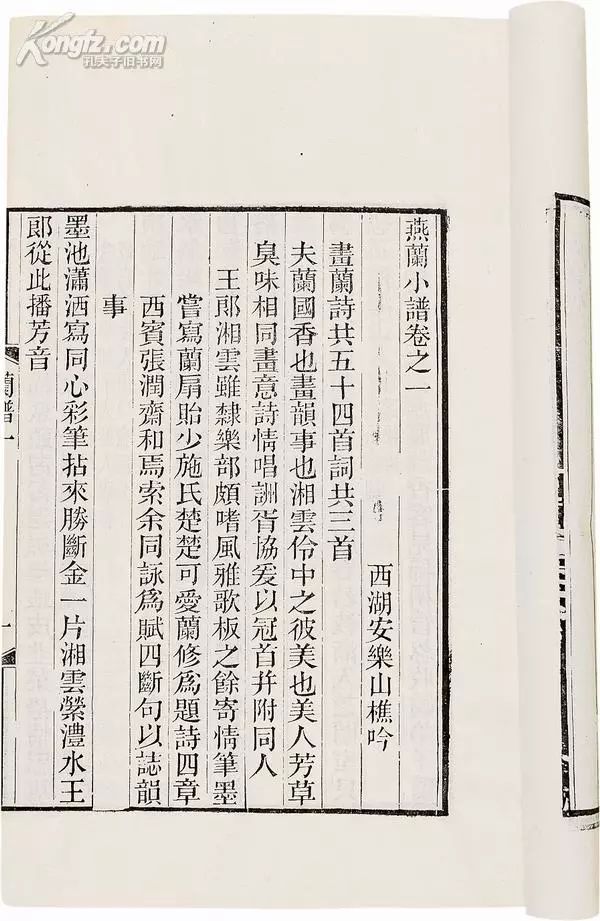 Kongfz.com
孔夫子旧书网
燕蘭小譜卷之一
西湖安樂山樵吟
畫蘭詩共五十四首詞共三首
夫蘭國香也畫韻事也湘雲伶中之彼美也美人芳草
臭味相同畫意詩情唱詶胥協爰以冠首幷附同人
王郎湘雲雖隸樂部頗嗜風雅歌板之餘寄情筆墨
嘗寫蘭扇貽少施氏楚楚可愛蘭修爲題詩四章
西賓張潤齋和焉索余同詠爲賦四斷句以誌韻
事
墨池瀟洒寫同心彩筆拈來勝斷金一片湘雲縈澧水王
郎從此播芳音
蘭譜一
一